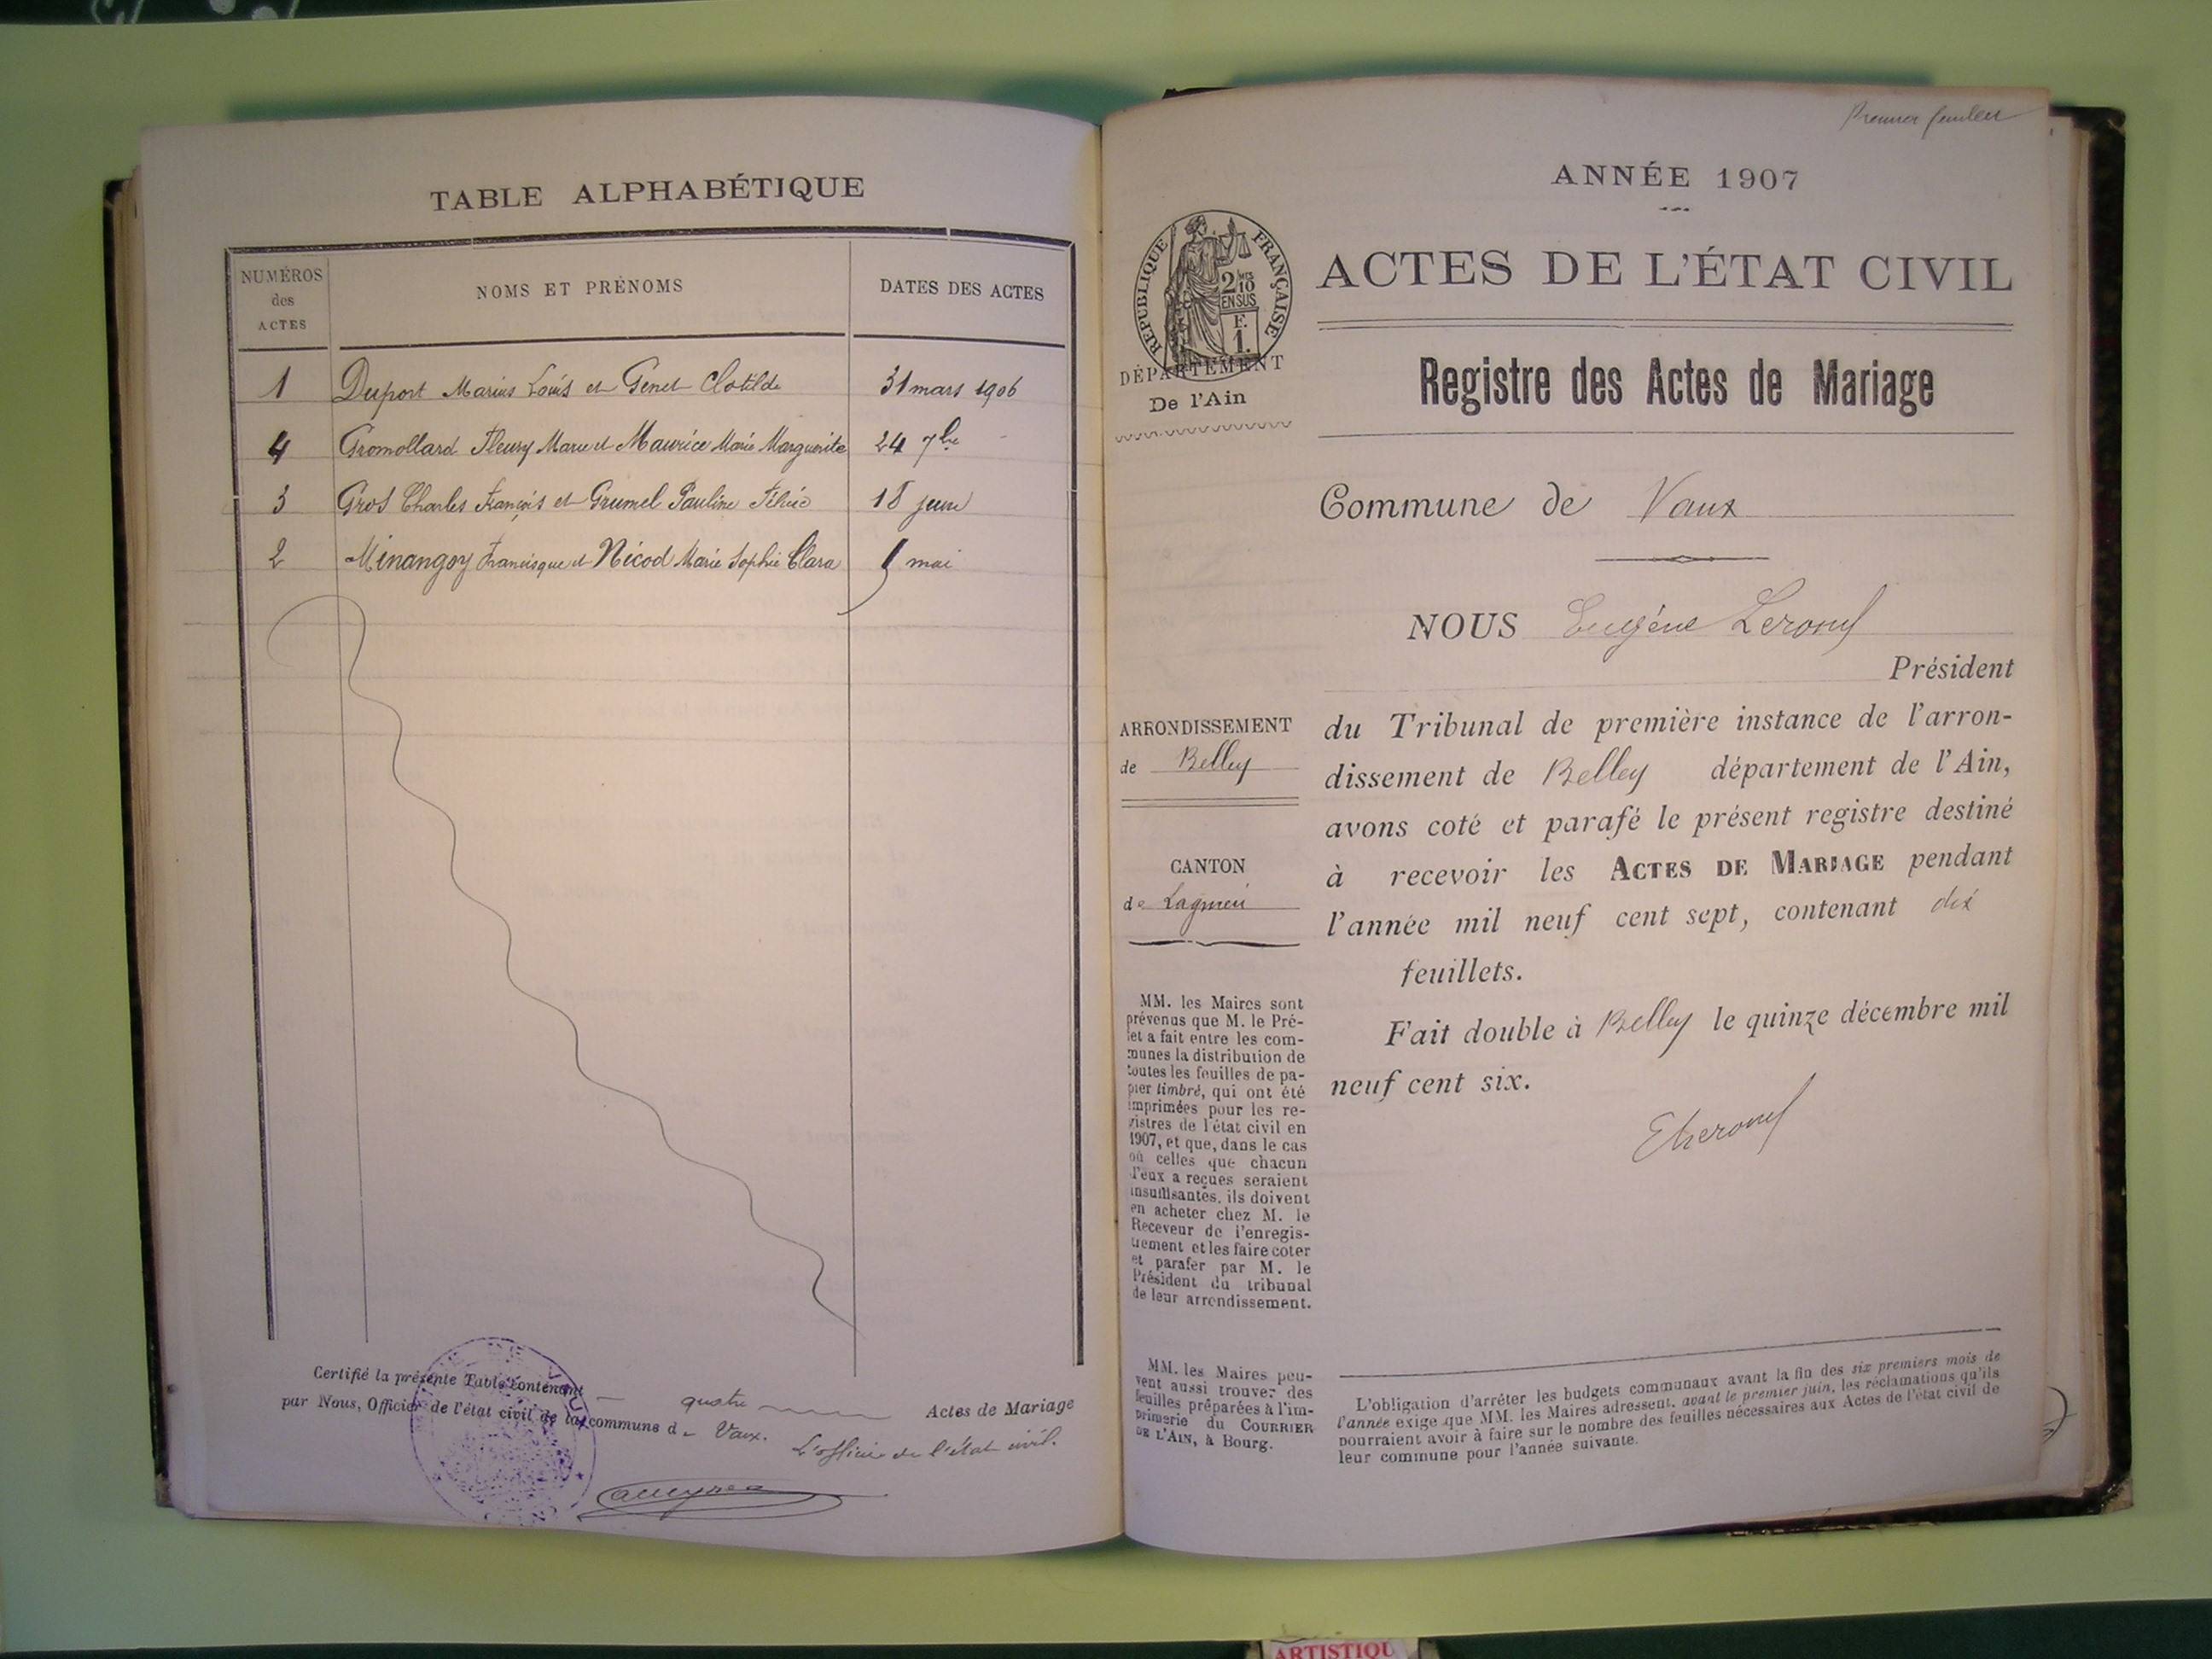 TABLE ALPHABÉTIQUE
NUMÉROS des ACTES
NOMS ET PRÉNOMS
DATES DES ACTES
1 Duport Marius Louis et Genet Clotilde 31 mars 1906
4 Gromollard Fleury Marie et Maurice Marie Marguerite 24 7bre
3 Gros Charles François et Grumel Pauline 18 juin
2 Minangoy Francisque et Nicod Marie Sophie Clara mai
Certifié la présente Table contenant quatre Actes de Mariage
par Nous, Officier de l'état civil de la commune d Vaux.
L'officier de l'état civil.
Premier feuillet
ANNÉE 1907
RÉPUBLIQUE FRANÇAISE
2/10
EN SUS
F.
1.
DÉPARTEMENT
De l'Ain
ACTES DE L'ÉTAT CIVIL
Registre des Actes de Mariage
Commune de Vaux
NOUS Eugène
Président
du Tribunal de première instance de l'arron-
dissement de Belley département de l'Ain,
avons coté et parafé le présent registre destiné
à recevoir les ACTES DE MARIAGE pendant
l'année mil neuf cent sept, contenant dix
feuillets.
Fait double à Belley le quinze décembre mil
neuf cent six.
ARRONDISSEMENT
de Belley
CANTON
de Lagnieu
MM. les Maires sont
prévenus que M. le Pré-
fet a fait entre les com-
munes la distribution de
toutes les feuilles de pa-
pier timbré, qui ont été
imprimées pour les re-
gistres de l'état civil en
1907, et que, dans le cas
où celles que chacun
d'eux a reçues seraient
insuffisantes, ils doivent
en acheter chez M. le
Receveur de l'enregis-
trement et les faire coter
et parafer par M. le
Président du tribunal
de leur arrondissement.
MM. les Maires peu-
vent aussi trouver des
feuilles préparées à l'im-
primerie du COURRIER
DE L'AIN, à Bourg.
L'obligation d'arrêter les budgets communaux avant la fin des six premiers mois de
l'année exige que MM. les Maires adressent, avant le premier juin, les réclamations qu'ils
pourraient avoir à faire sur le nombre des feuilles nécessaires aux Actes de l'état civil de
leur commune pour l'année suivante.
ARTISTIQU